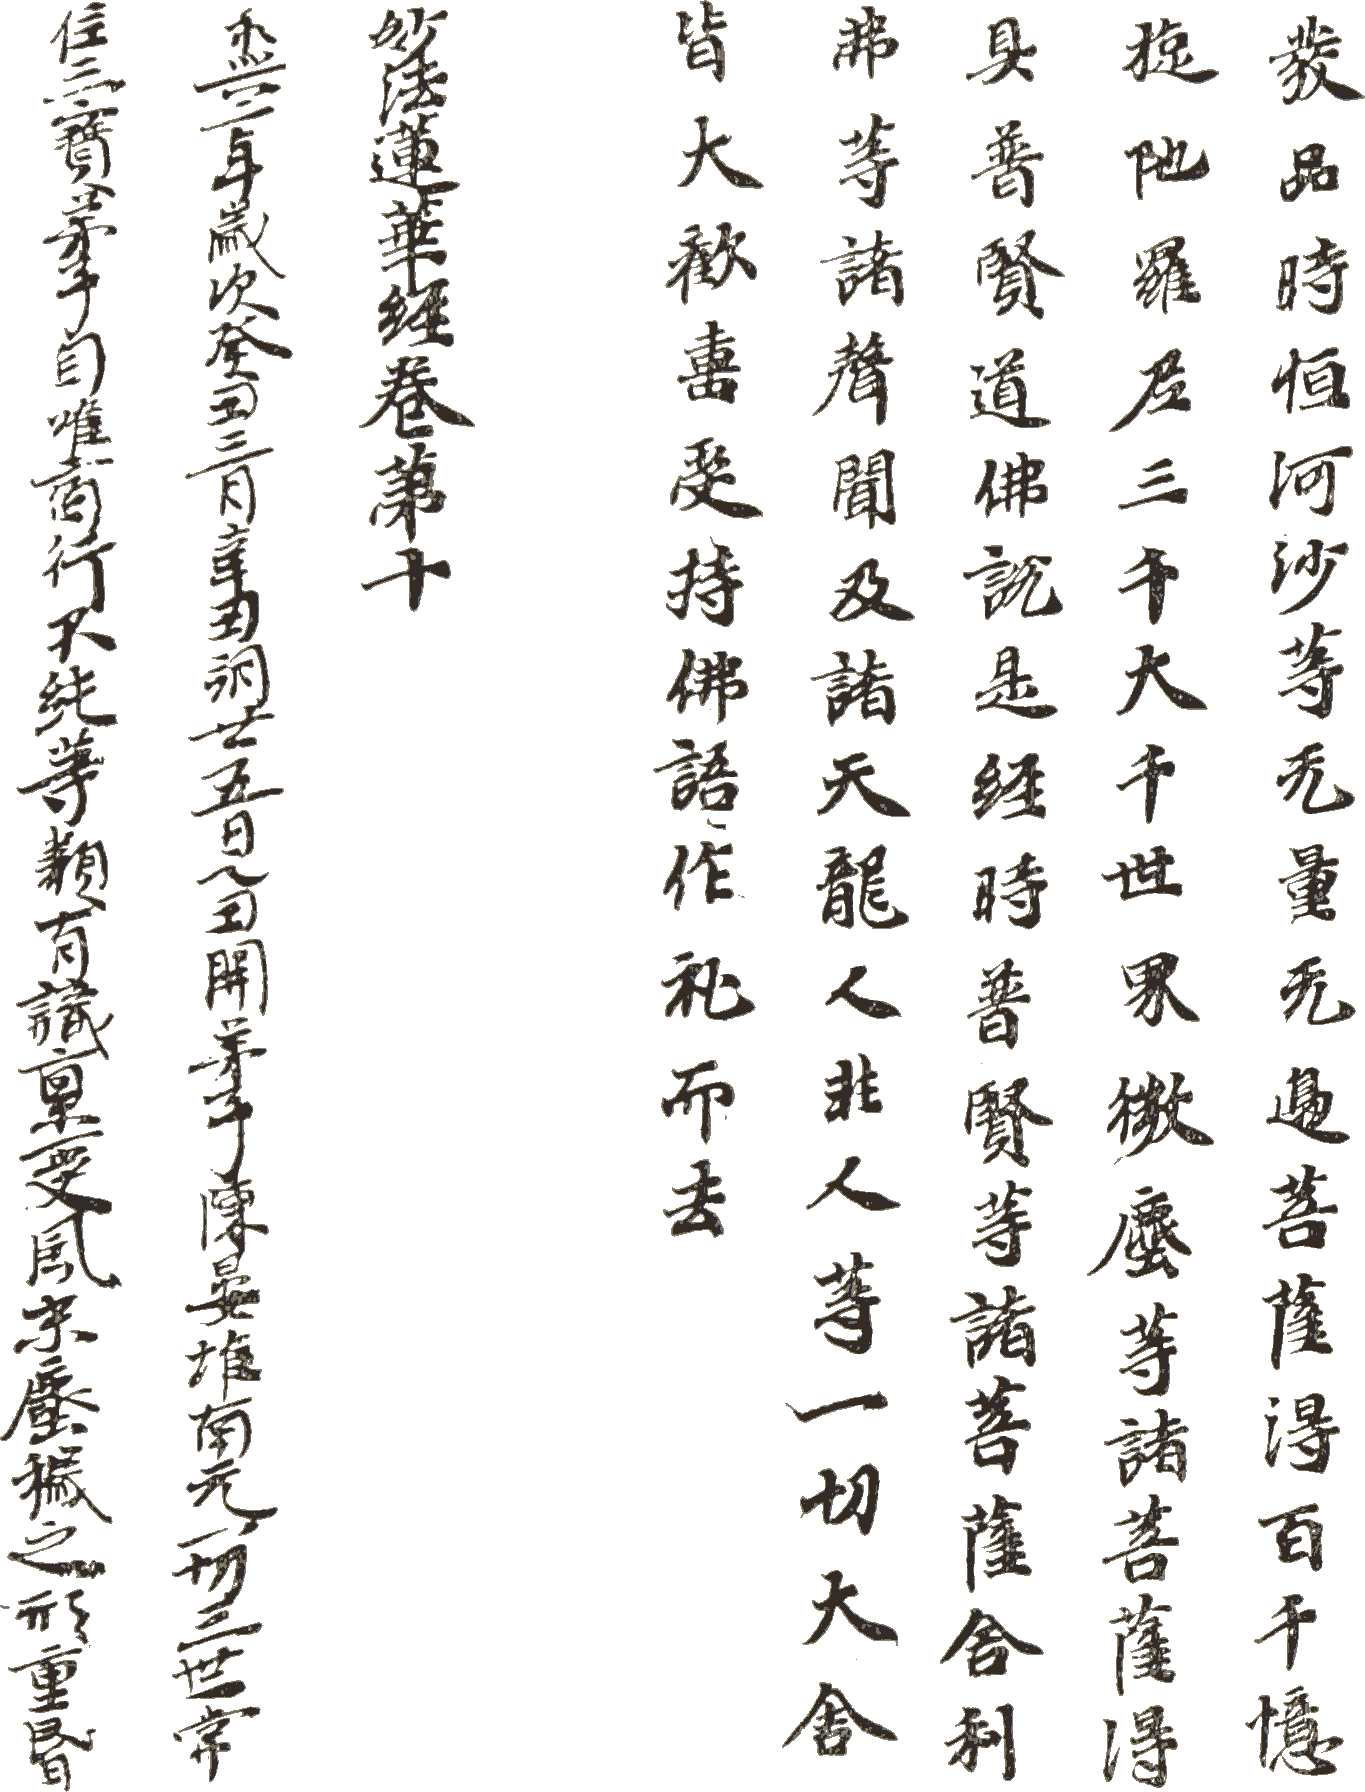 發品時恒河沙等无量无邊菩薩得百千憶
旋陁羅尼三千大千世界微塵等諸菩薩得
具普賢道佛說是經時普賢等諸菩薩舍利
弗等諸聲聞及諸天龍人非人等一切大會
皆大歡喜受持佛語作礼而去
妙法蓮華經卷第十
永興二年歲次癸丑三月辛丑朔廿五日乙丑開弟子陳晏堆南无一切三世常
住三寶弟子自唯宿行不純等類有識稟受風末塵穢之形重昏